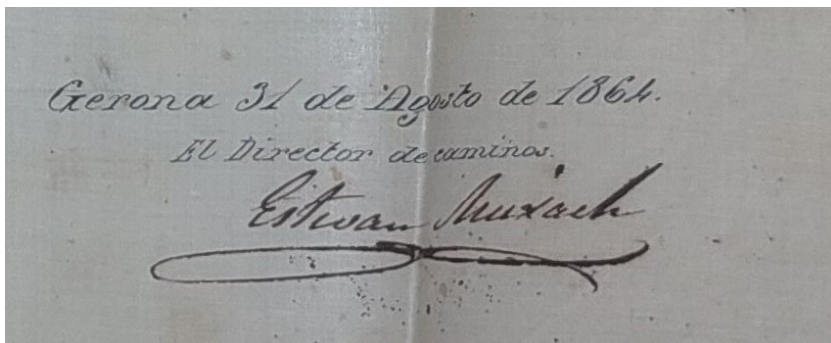 Gerona 31 de Agosto de 1864.
El Director de caminos.
Estevan Muxach